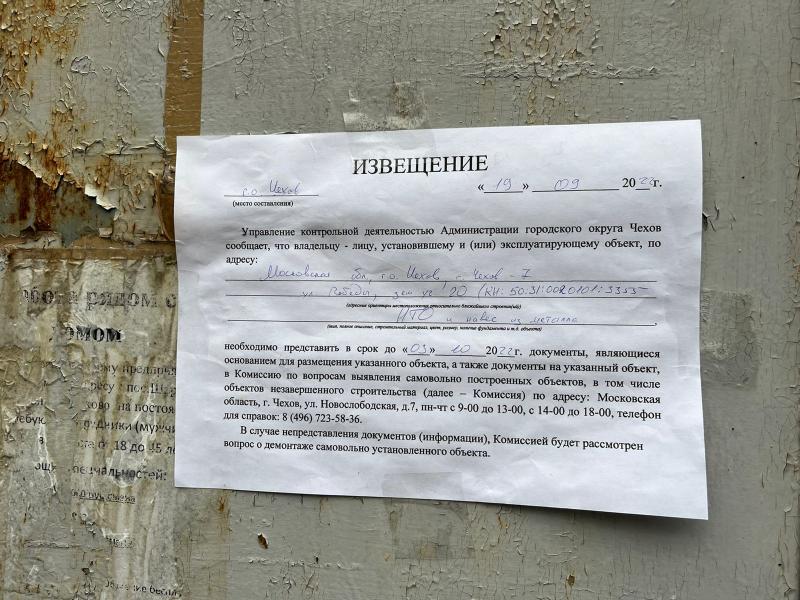 ИЗВЕЩЕНИЕ
г.о Чехов «19» 09 2022г.
(место составления)
Управление контрольной деятельностью Администрации городского округа Чехов
сообщает, что владельцу - лицу, установившему и (или) эксплуатирующему объект, по
адресу:
Московская обл, г.о. Чехов г. Чехов - 7
ул Победы, зем уч 20 (КН: 50:31:0020101:3355
(адресные ориентиры местоположения относительно ближайшего строения(ий))
НТО и навес из металла,
необходимо представить в срок до «03» 10 2022г. документы, являющиеся
основанием для размещения указанного объекта, а также документы на указанный объект,
в Комиссию по вопросам выявления самовольно построенных объектов, в том числе
объектов незавершенного строительства (далее – Комиссия) по адресу: Московская
область, г. Чехов, ул. Новослободская, д.7, пн-чт с 9-00 до 13-00, с 14-00 до 18-00, телефон
для справок: 8 (496) 723-58-36.
В случае непредставления документов (информации), Комиссией будет рассмотрен
вопрос о демонтаже самовольно установленного объекта.
рядом с
домом
на постоя
от 18 до 45 ле